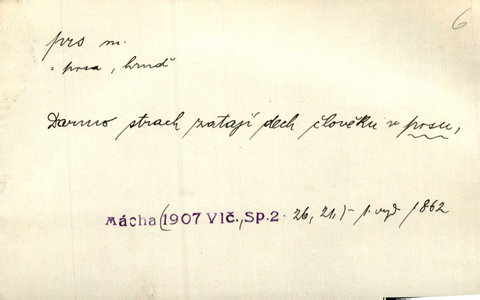 6
prs m.
= prsa, hrudě
Darmo strach zatají dech člověku v prsu,
Mácha (1907 Vlč., Sp. 2. 26, 21) - 1. vyd. 1862